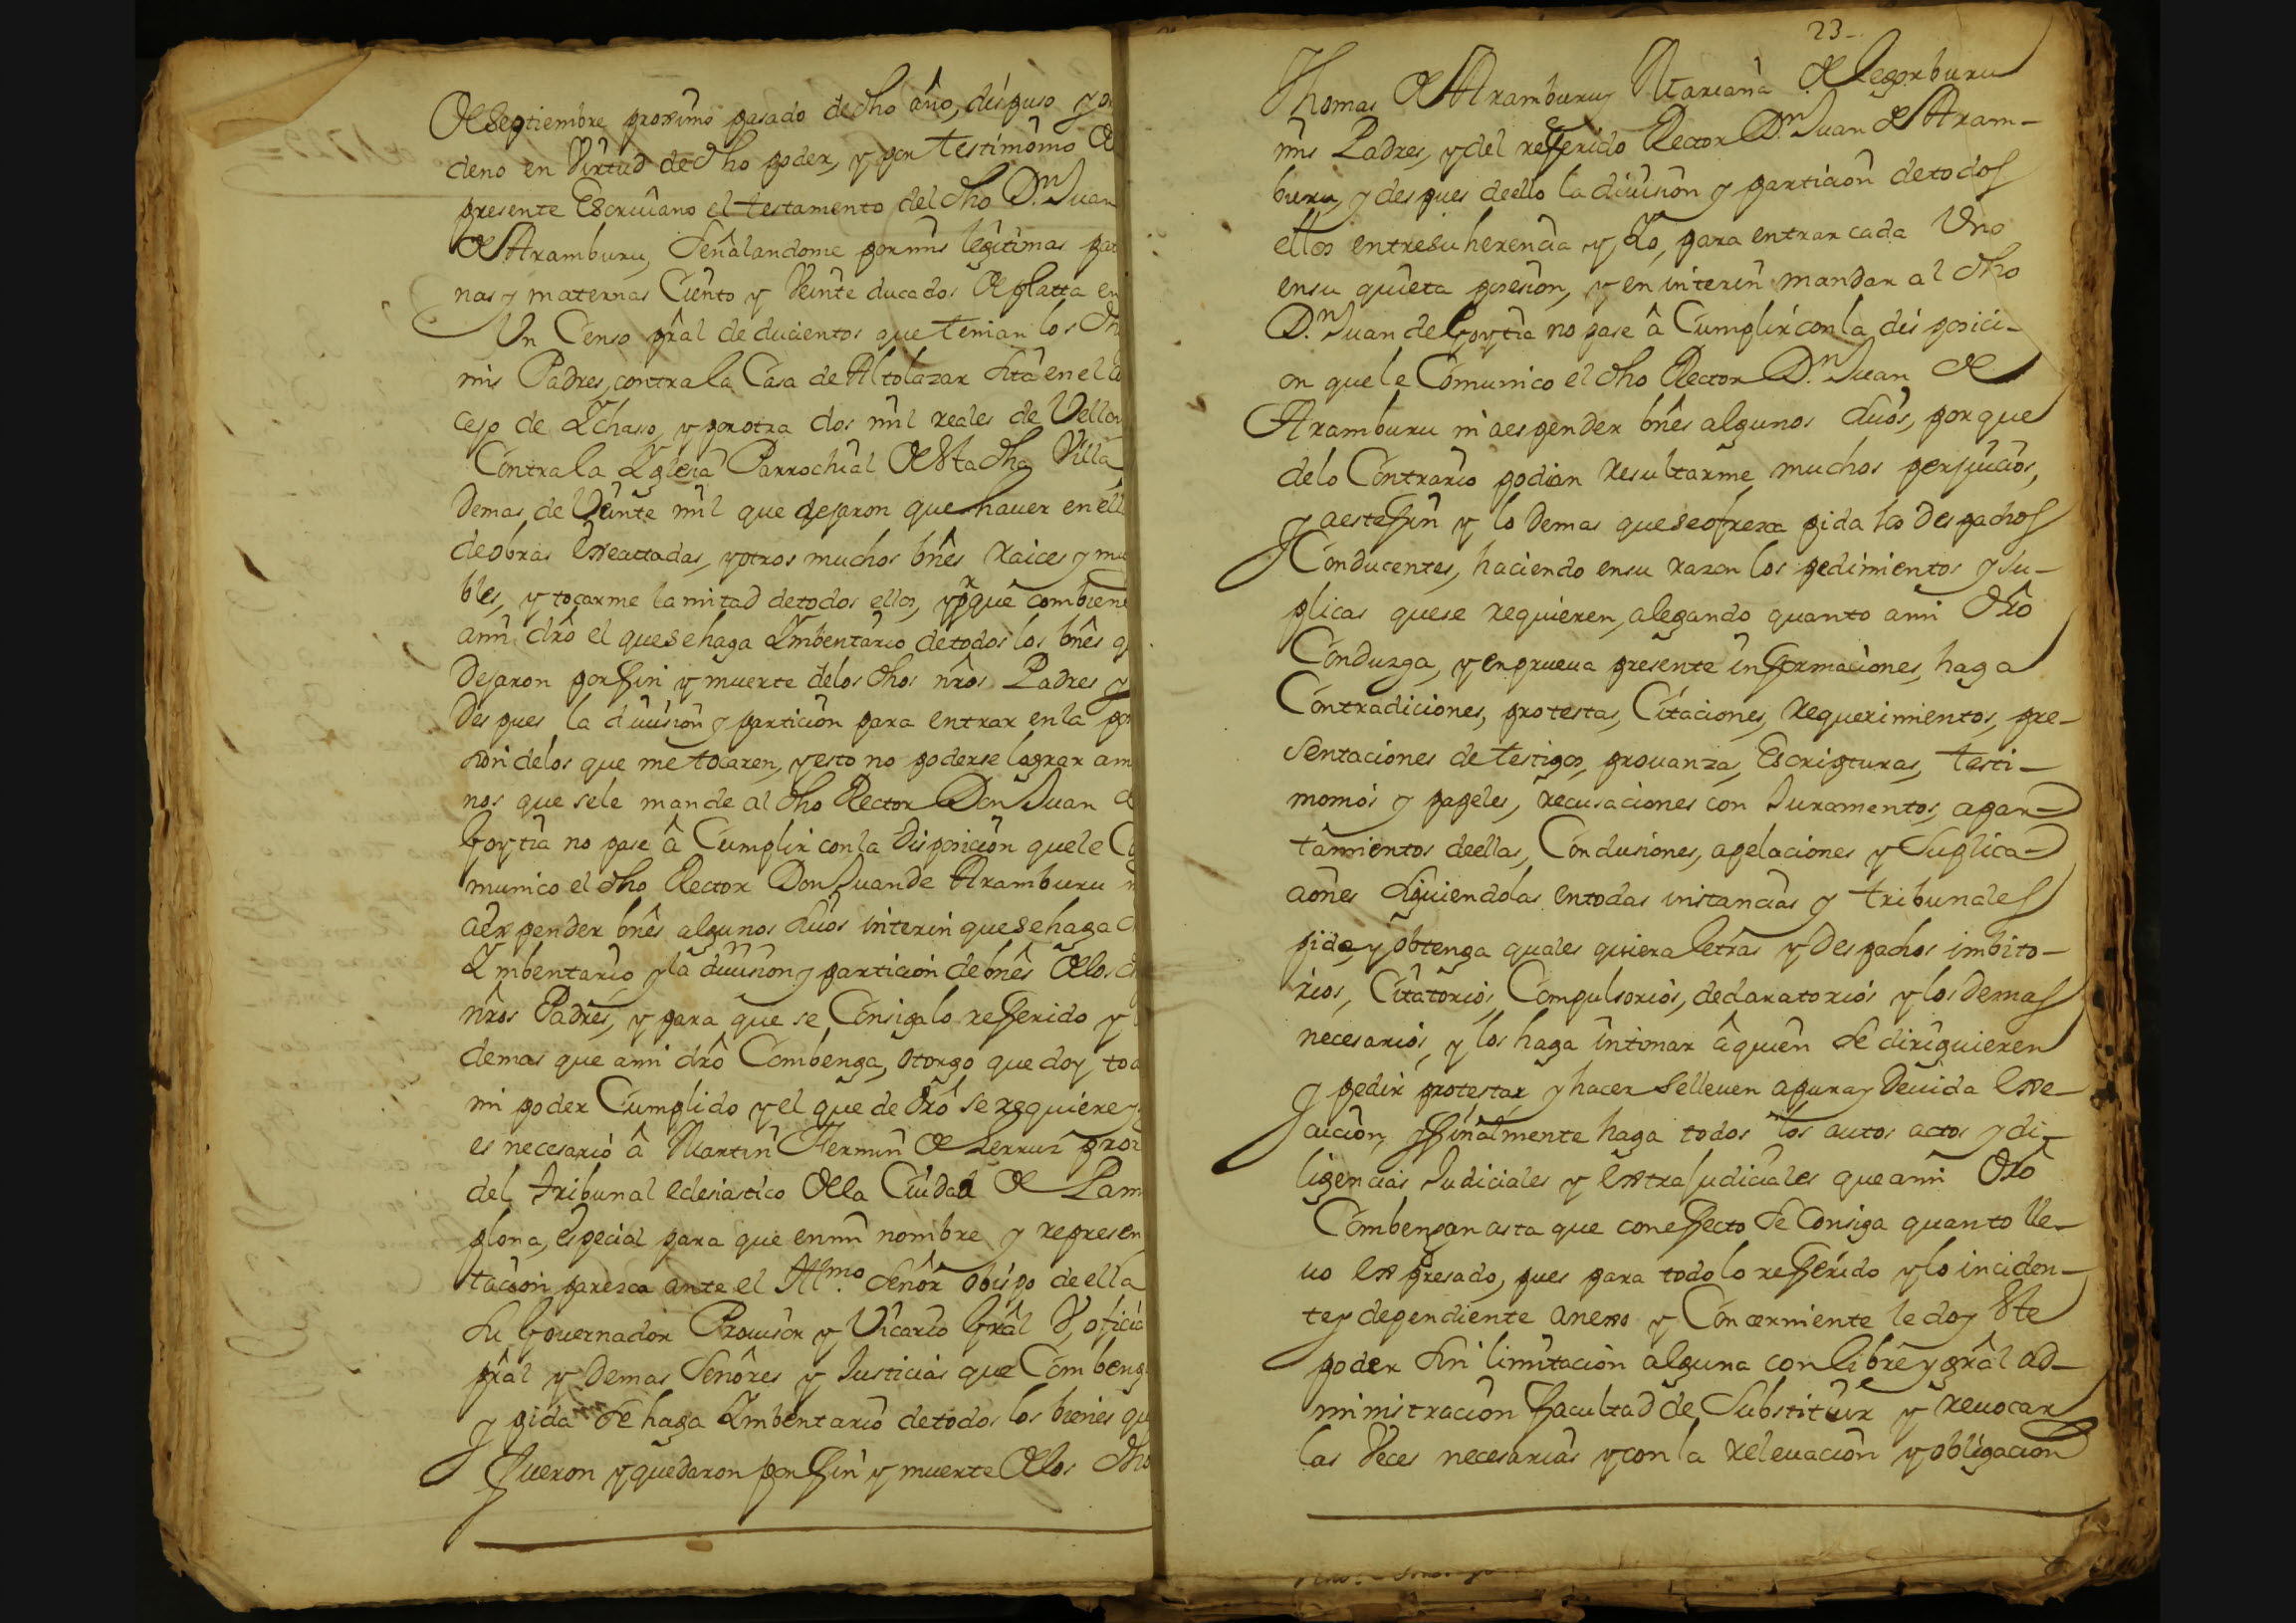 de Septiembre proximo pasado de dho año, dispuso y or
deno en Virtud de dho poder, y por testimonio de
presente Escriuano el testamento del dho Dn. Juan
de Aramburu, señalandome por mis legitimas pat
nas y maternas Ciento y Veinte ducados de platta en
Un Censo pral de ducientos que tenian los dh
mis Padres, contra la Casa de Altolazar sita en el co
cejo de Ychaso, y por otra dos mil reales de Vellon
Contra la Yglesia Parrochial de sta dha Villa
demas de Veinte mil que dejaron que hauer en ell
de obras exeattadas, y otros muchos bnes raices y mu
bles, y tocarme la mitad de todos ellos, y pr que combiene
a mi dro el que se haga Ymbentario de todos los bnes q
dejaron por fin y muerte de los dhos nros Padres y
despues la diuision y particion para entrar en la po
sion de los que me tocaren, y esto no poderse lograr a m
nos que se le mande al dho Rector Don Juan d
Goytia no pase â Cumplir con la disposicion que le Co
munico el dho Rector Don Juan de Aramburu n
aexpender bnes algunos suios interin que se haga d
Ymbentario y la diuision y particion de bnes de los d
nros Padres, y para que se Consiga lo referido y l
demas que a mi dro Combenga, otorgo que doy tod
mi poder Cumplido y el que de dro se requiere y
es necesario â Martin Fermin de Lerruz pror
del tribunal eclesiastico de la Ciudad de Pam
plona, especial para que en mi nombre y represen
tacion paresca ante el Illmo. Señor obispo de ella
su Gouernador Prouisor y Vicario Gral V, oficia
pral y demas Señores y Justicias que Combeng
y pida se haga Ymbentario de todos los bienes qu
fueron y quedaron por fin y muerte de los dho
23-
Thomas de Aramburu y Mariana de Legorburu
mis Padres, y del referido Rector Dn. Juan de Aram-
buru, y despues de ello la diuision y particion de todos
ellos entre su herencia y Yo, para entrar cada Uno
en su quieta posesion, y en interin mandar al dho
Dn. Juan de Goytia no pase â Cumplir con la disposici-
on que le Comunico el dho Rector Dn. Juan de
Aramburu ni aespender bnes algunos suios, por que
de lo Contrario podian resultarme muchos perjuicios,
y a este fin y lo demas que se ofrezca pida los despachos
Conducentes, haciendo en su razon los pedimientos y su-
plicas que se requieren, alegando quanto a mi dro
Conduzga, y en prueua presente informaciones, haga
Contradiciones, protestas, Citaciones, requerimientos, pre-
sentaciones de testigos, prouanzas, Escripturas, testi-
monios y papeles, recusaciones con Juramentos, apar-
tamientos de ellas, Conclusiones, apelaciones y Suplica-
ciones siguiendolas en todas instancias y tribunales
pida y obtenga quales quiera letras y despachos imbito-
rios, Citatorios, Compulsorios, declaratorios y los demas
necesarios, y los haga intimar â quien se diriguieren
y pedir protestar y hacer se lleuen a pura y deuida exe-
cucion, y finalmente haga todos los autos actos y di-
ligencias Judiciales y extrajudiciales que a mi dro
Combengan asta que con efecto se Consiga quanto lle-
uo expresado, pues para todo lo referido y lo inciden-
te y dependiente anexo y Concerniente le doy este
poder sin limitacion alguna con libre y gral ad-
ministracion facultad de Substituir y reuocar
las Veces necesarias y con la releuacion y obligacion